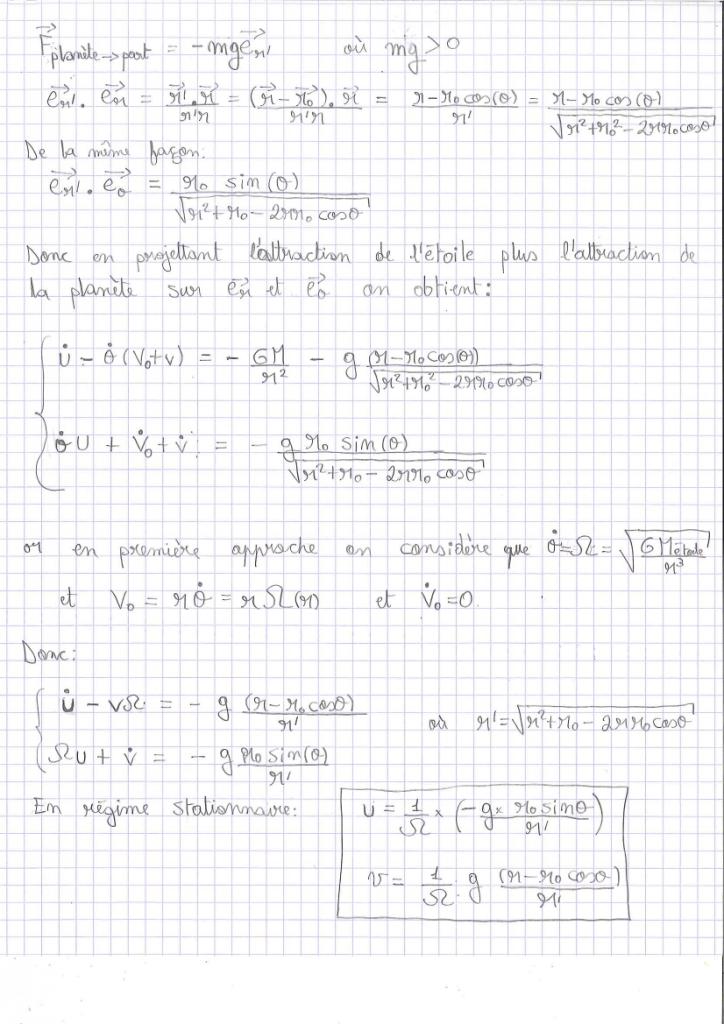 F⃗planète→part = -mg e⃗r' où mg > 0
e⃗r'. e⃗r = r⃗'.r⃗ / r'r = (r⃗-r⃗0).r⃗ / r'r = r-r0cos(θ) / r' = r-r0cos(θ) / √(r²+r0²-2rr0cosθ)
De la même façon:
e⃗r'. e⃗θ = r0 sin(θ) / √(r²+r0-2rr0cosθ)
Donc en projettant l'attraction de l'étoile plus l'attraction de
la planète sur e⃗r et e⃗θ on obtient:
{ u̇ - θ̇(V0+v) = - GM/r² - g (r-r0cos(θ)) / √(r²+r0²-2rr0cosθ)
θ̇U + V̇0 + v̇ = - g r0 sin(θ) / √(r²+r0-2rr0cosθ)
or en première approche on considère que θ̇=Ω = √(GMétoile / r³)
et V0 = rθ̇ = rΩ(r) et V̇0=0.
Donc:
{ u̇ - vΩ = - g (r-r0cosθ) / r' où r'=√(r²+r0-2rr0cosθ)
Ωu + v̇ = - g r0sin(θ) / r'
En régime stationnaire: u = 1/Ω × (-g× r0sinθ / r')
v = 1/Ω . g (r-r0cosθ) / r'